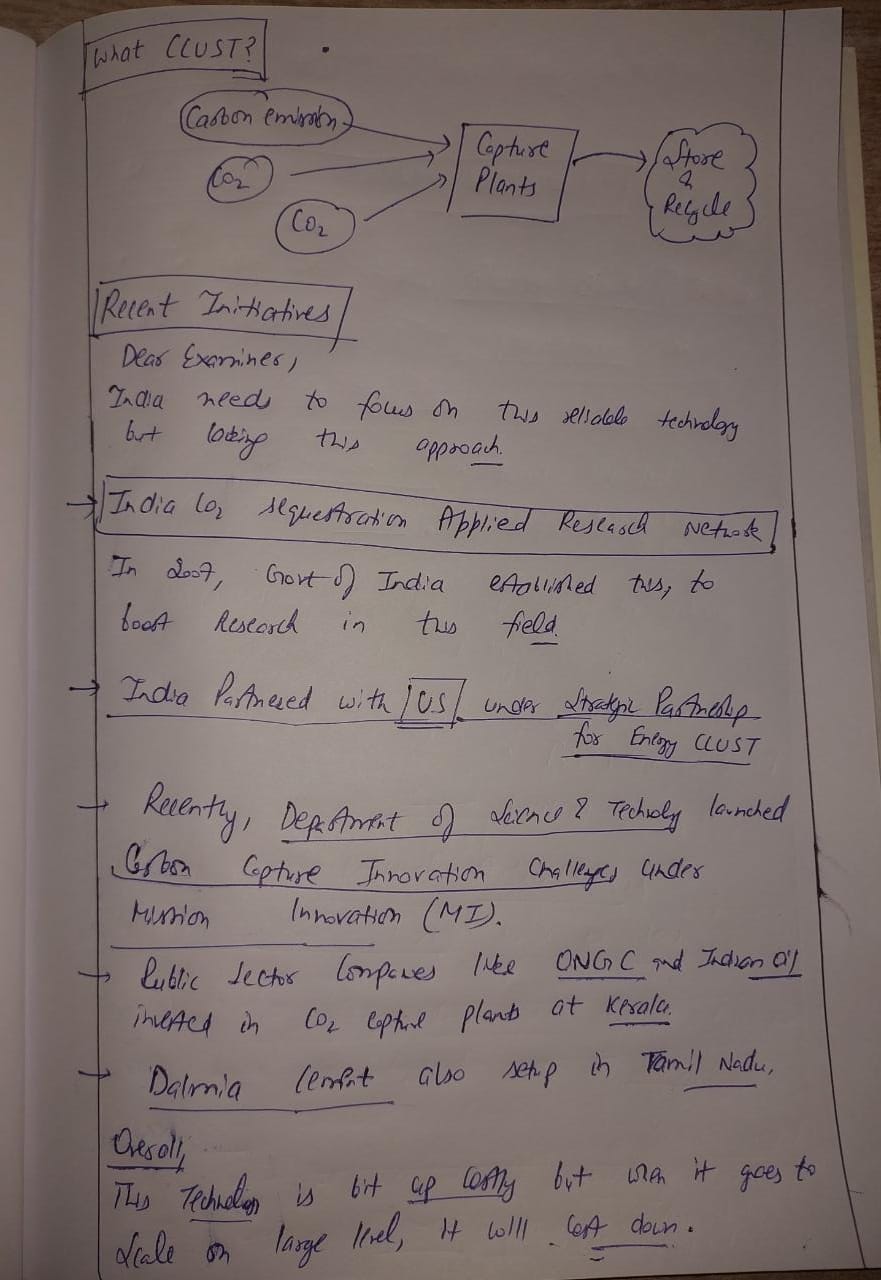 What CCUST?
Carbon emission
CO2
CO2
Capture
Plants
Store
&
Recycle
Recent Initiatives
Dear Examiner,
India needs to focus on this reliable technology
but lacking this approach.
→ India CO2 sequestration Applied Research Network
In 2007, Govt of India established this, to
boost Research in this field.
→ India Partnered with US under Strategic Partnership
for Energy CCUST
→ Recently, Department of Science & Technoly launched
Carbon Capture Innovation Challenges under
Mission Innovation (MI).
→ Public Sector Companies like ONGC and Indian Oil
invested in CO2 capture plants at Kerala.
→ Dalmia Cement also setup in Tamil Nadu.
Overall,
This Technology is bit up costly but when it goes to
Scale on large level, it will cost down.